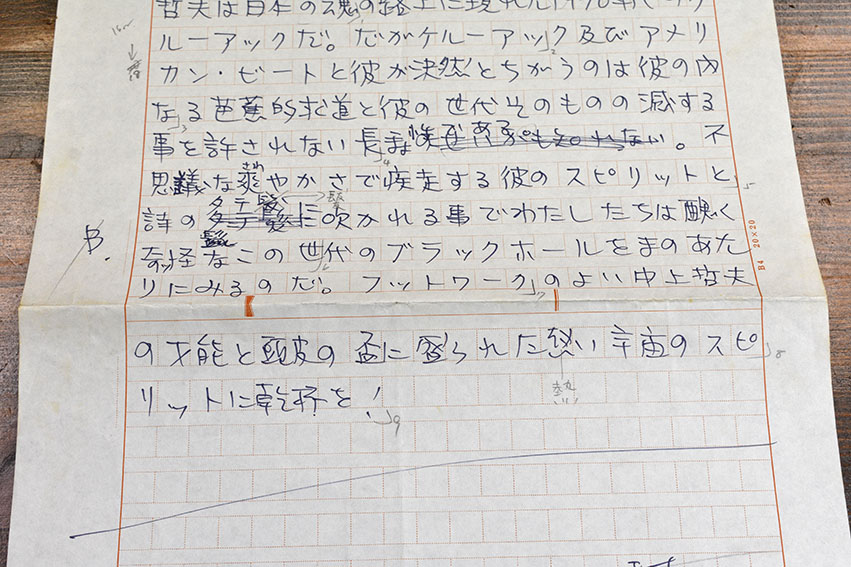 哲夫は日本の魂の路上に現れた
ルーアックだ。だがケルーアック及びアメリ
カン・ビートと彼が決然とちがうのは彼の内
なる芭蕉的求道と彼の世代そのものの滅する
事を許されない長
。不
思議な爽やかさで疾走する彼のスピリットと
詩のタテ髪に吹かれる事でわたしたちは醜く
奇怪なこの世代のブラックホールをまのあた
りにみるのだ。フットワークのよい中上哲夫
の才能と頭皮の盃に盛られた熱い宇宙のスピ
リットに乾杯を!
B.
熱い
B4 20×20
2
3
4
5
7
8
9